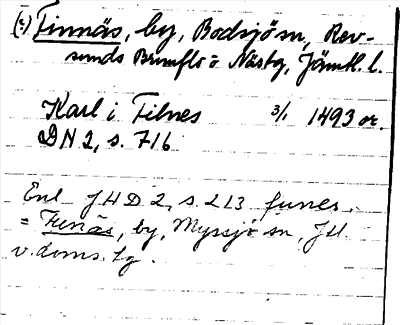 (?) Finnäs, by, Bodsjö sn, Rev-
sunds Brunflo o Näs tg, Jämtl. l.
Karl i Filnes 3/1 1493 or.
DN 2, s. 716
Enl JHD 2, s 213 funes.
= Funäs, by, Myssjö sn, Jtl
v. doms. tg.